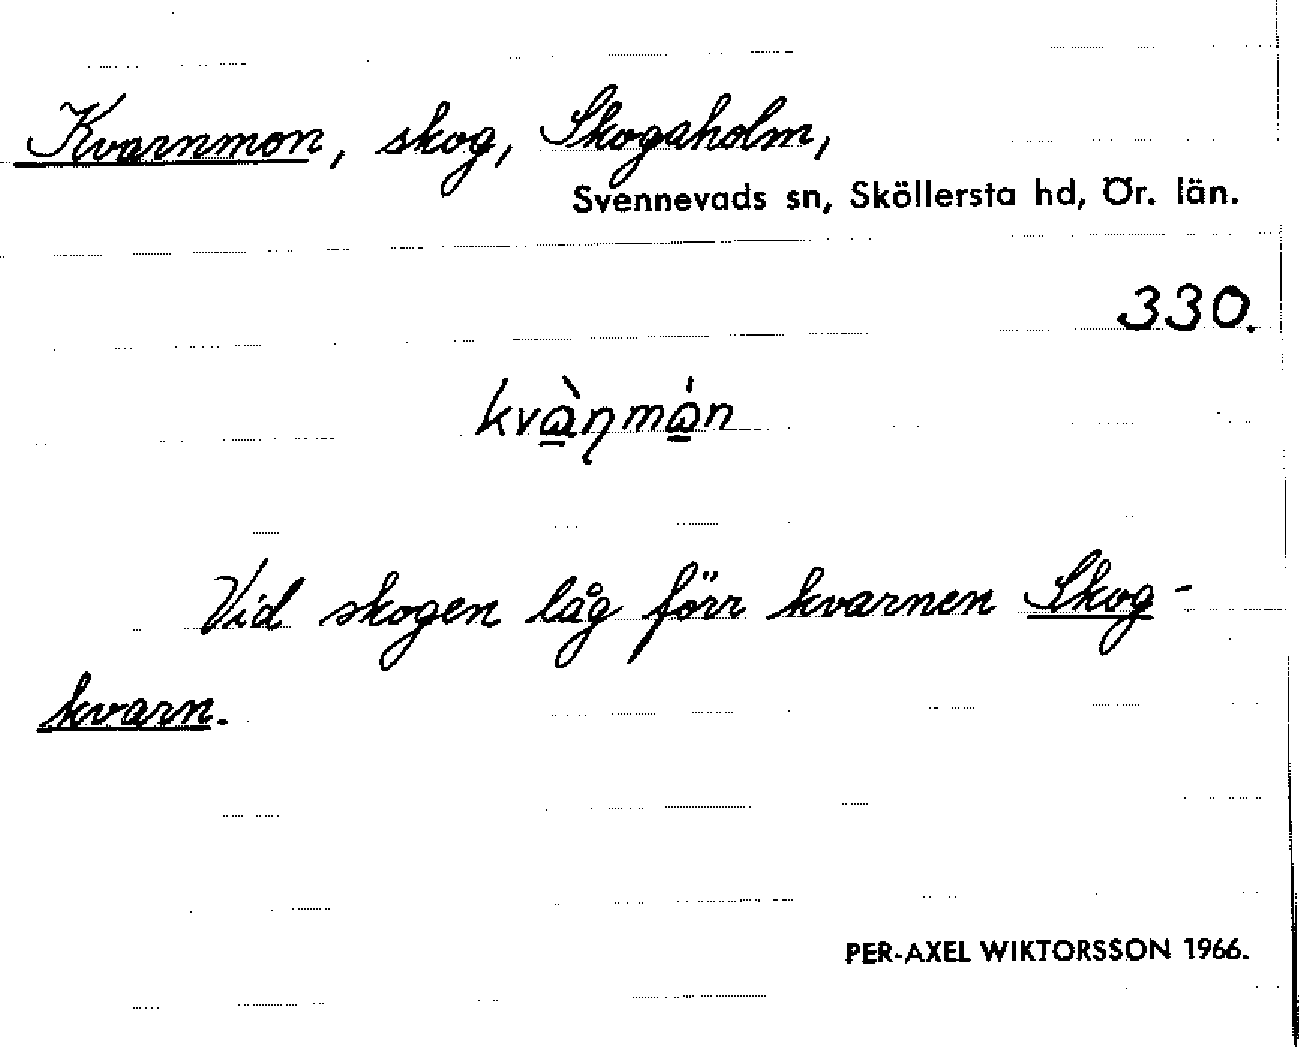 Kvarnmon, skog, Skogaholm,
Svennevads sn, Sköllersta hd, Ör. län.
330.
kvà̲ɳmá̲n
Vid skogen låg förr kvarnen Skog-
kvarn.
PER-AXEL WIKTORSSON 1966.